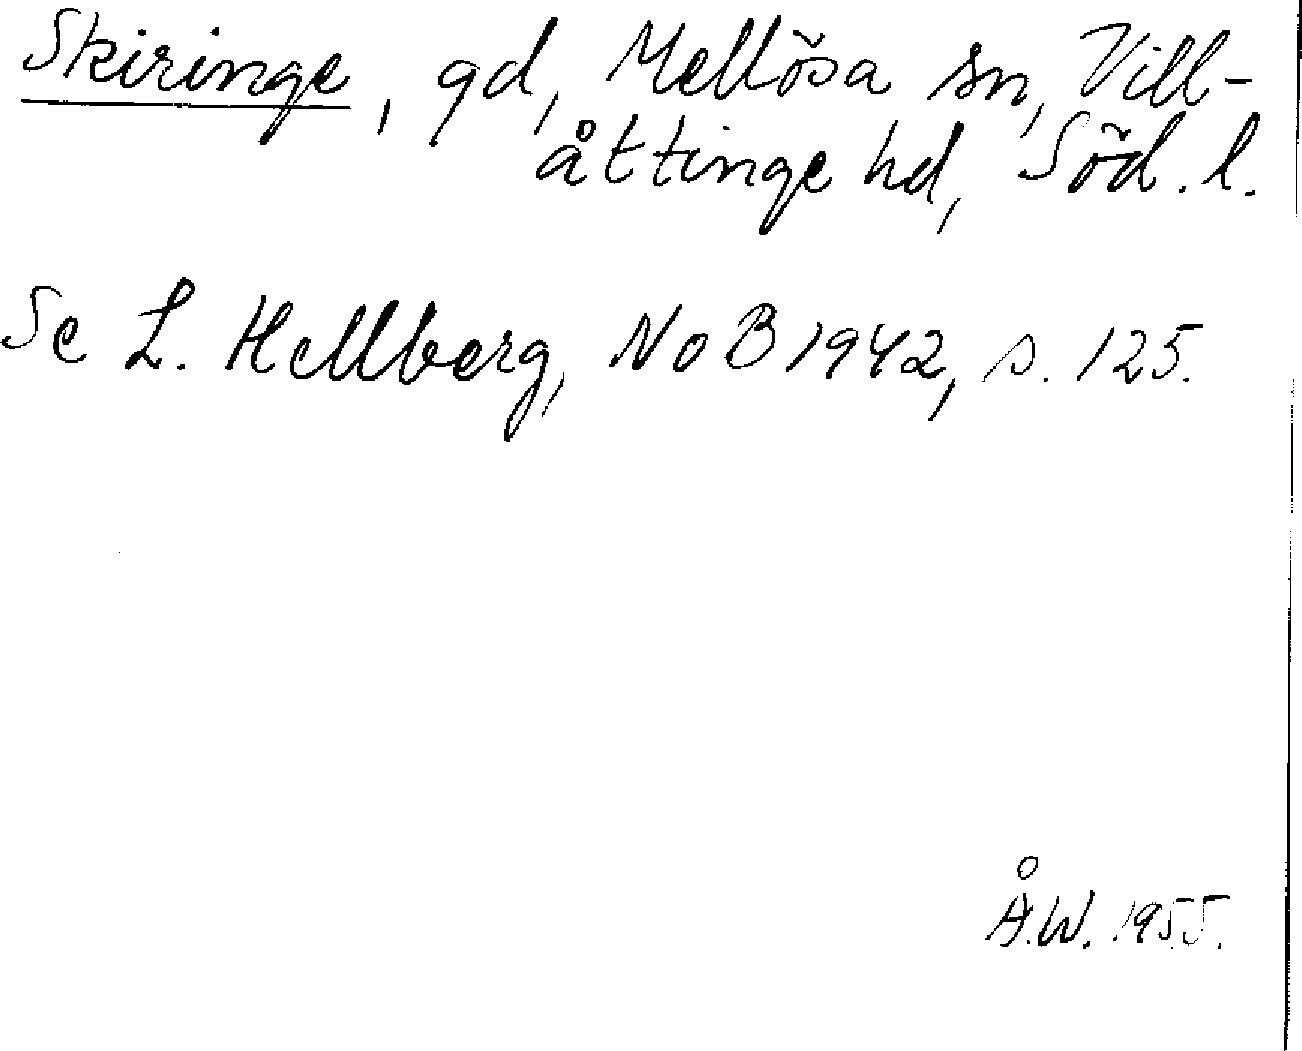 Skiringe, gd, Mellösa sn, Vill-
åttinge hd, Söd. l.
Se L. Hellberg, NoB 1942, s. 125.
Å.W. 1955.